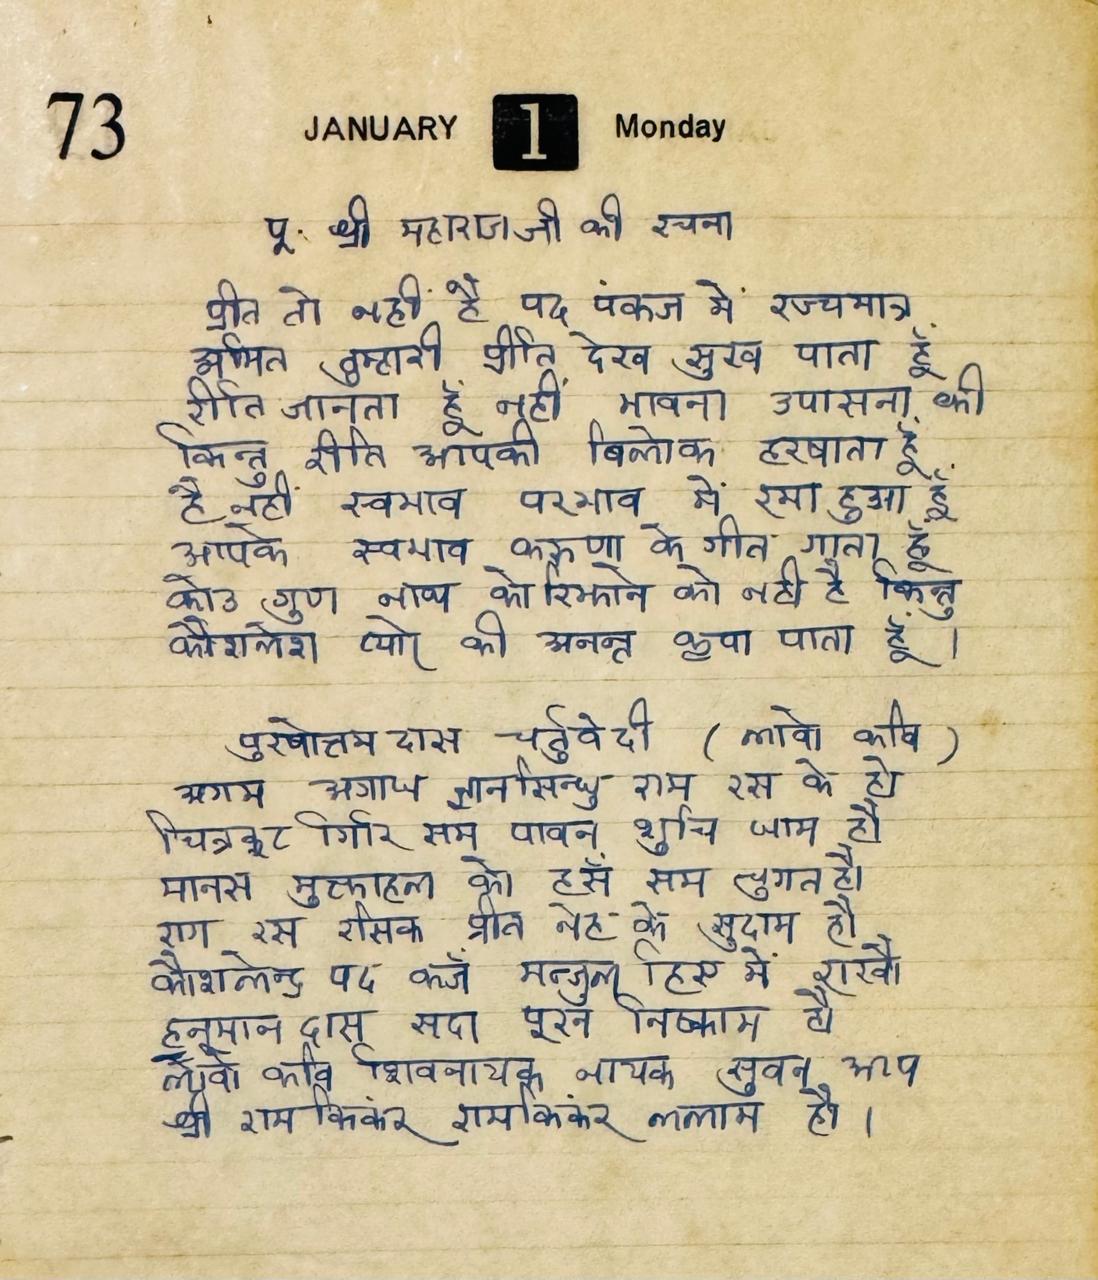 73 JANUARY 1 Monday
पू. श्री महाराज जी की रचना
प्रीत तो नहीं है पद पंकज में रज्यमात्र
अमित तुम्हारी प्रीति देख सुख पाता हूँ
रीति जानता हूँ नहीं भावना उपासना की
किन्तु रीति आपकी बिलोक हरषाता हूँ
है नहीं स्वभाव परभाव में रमा हुआ हूँ
आपके स्वभाव करूणा के गीत गाता हूँ
कोउ गुण नाथ को रिझाने को नही है किन्तु
कौशलेश प्यारे की अनन्त कृपा पाता हूँ ।
पुरषोत्तम दास चर्तुवेदी ( लावो कवि )
अगम अगाध ज्ञानसिन्धु राम रस के हो
चित्रकूट गिरि सम पावन शुचि धाम हौ
मानस मुक्ताहल को हसँ सम चुगत हौ
राग रस रसिक प्रीत नेह के सुदाम हौ
कौशलेन्द्र पद कजँ मन्जुल हिए में राखौ
हनूमान दास सदा पूरन निष्काम हौ
लावो कवि शिवनायक नायक सुवन आप
श्री राम किंकर रामकिंकर ललाम हौ ।